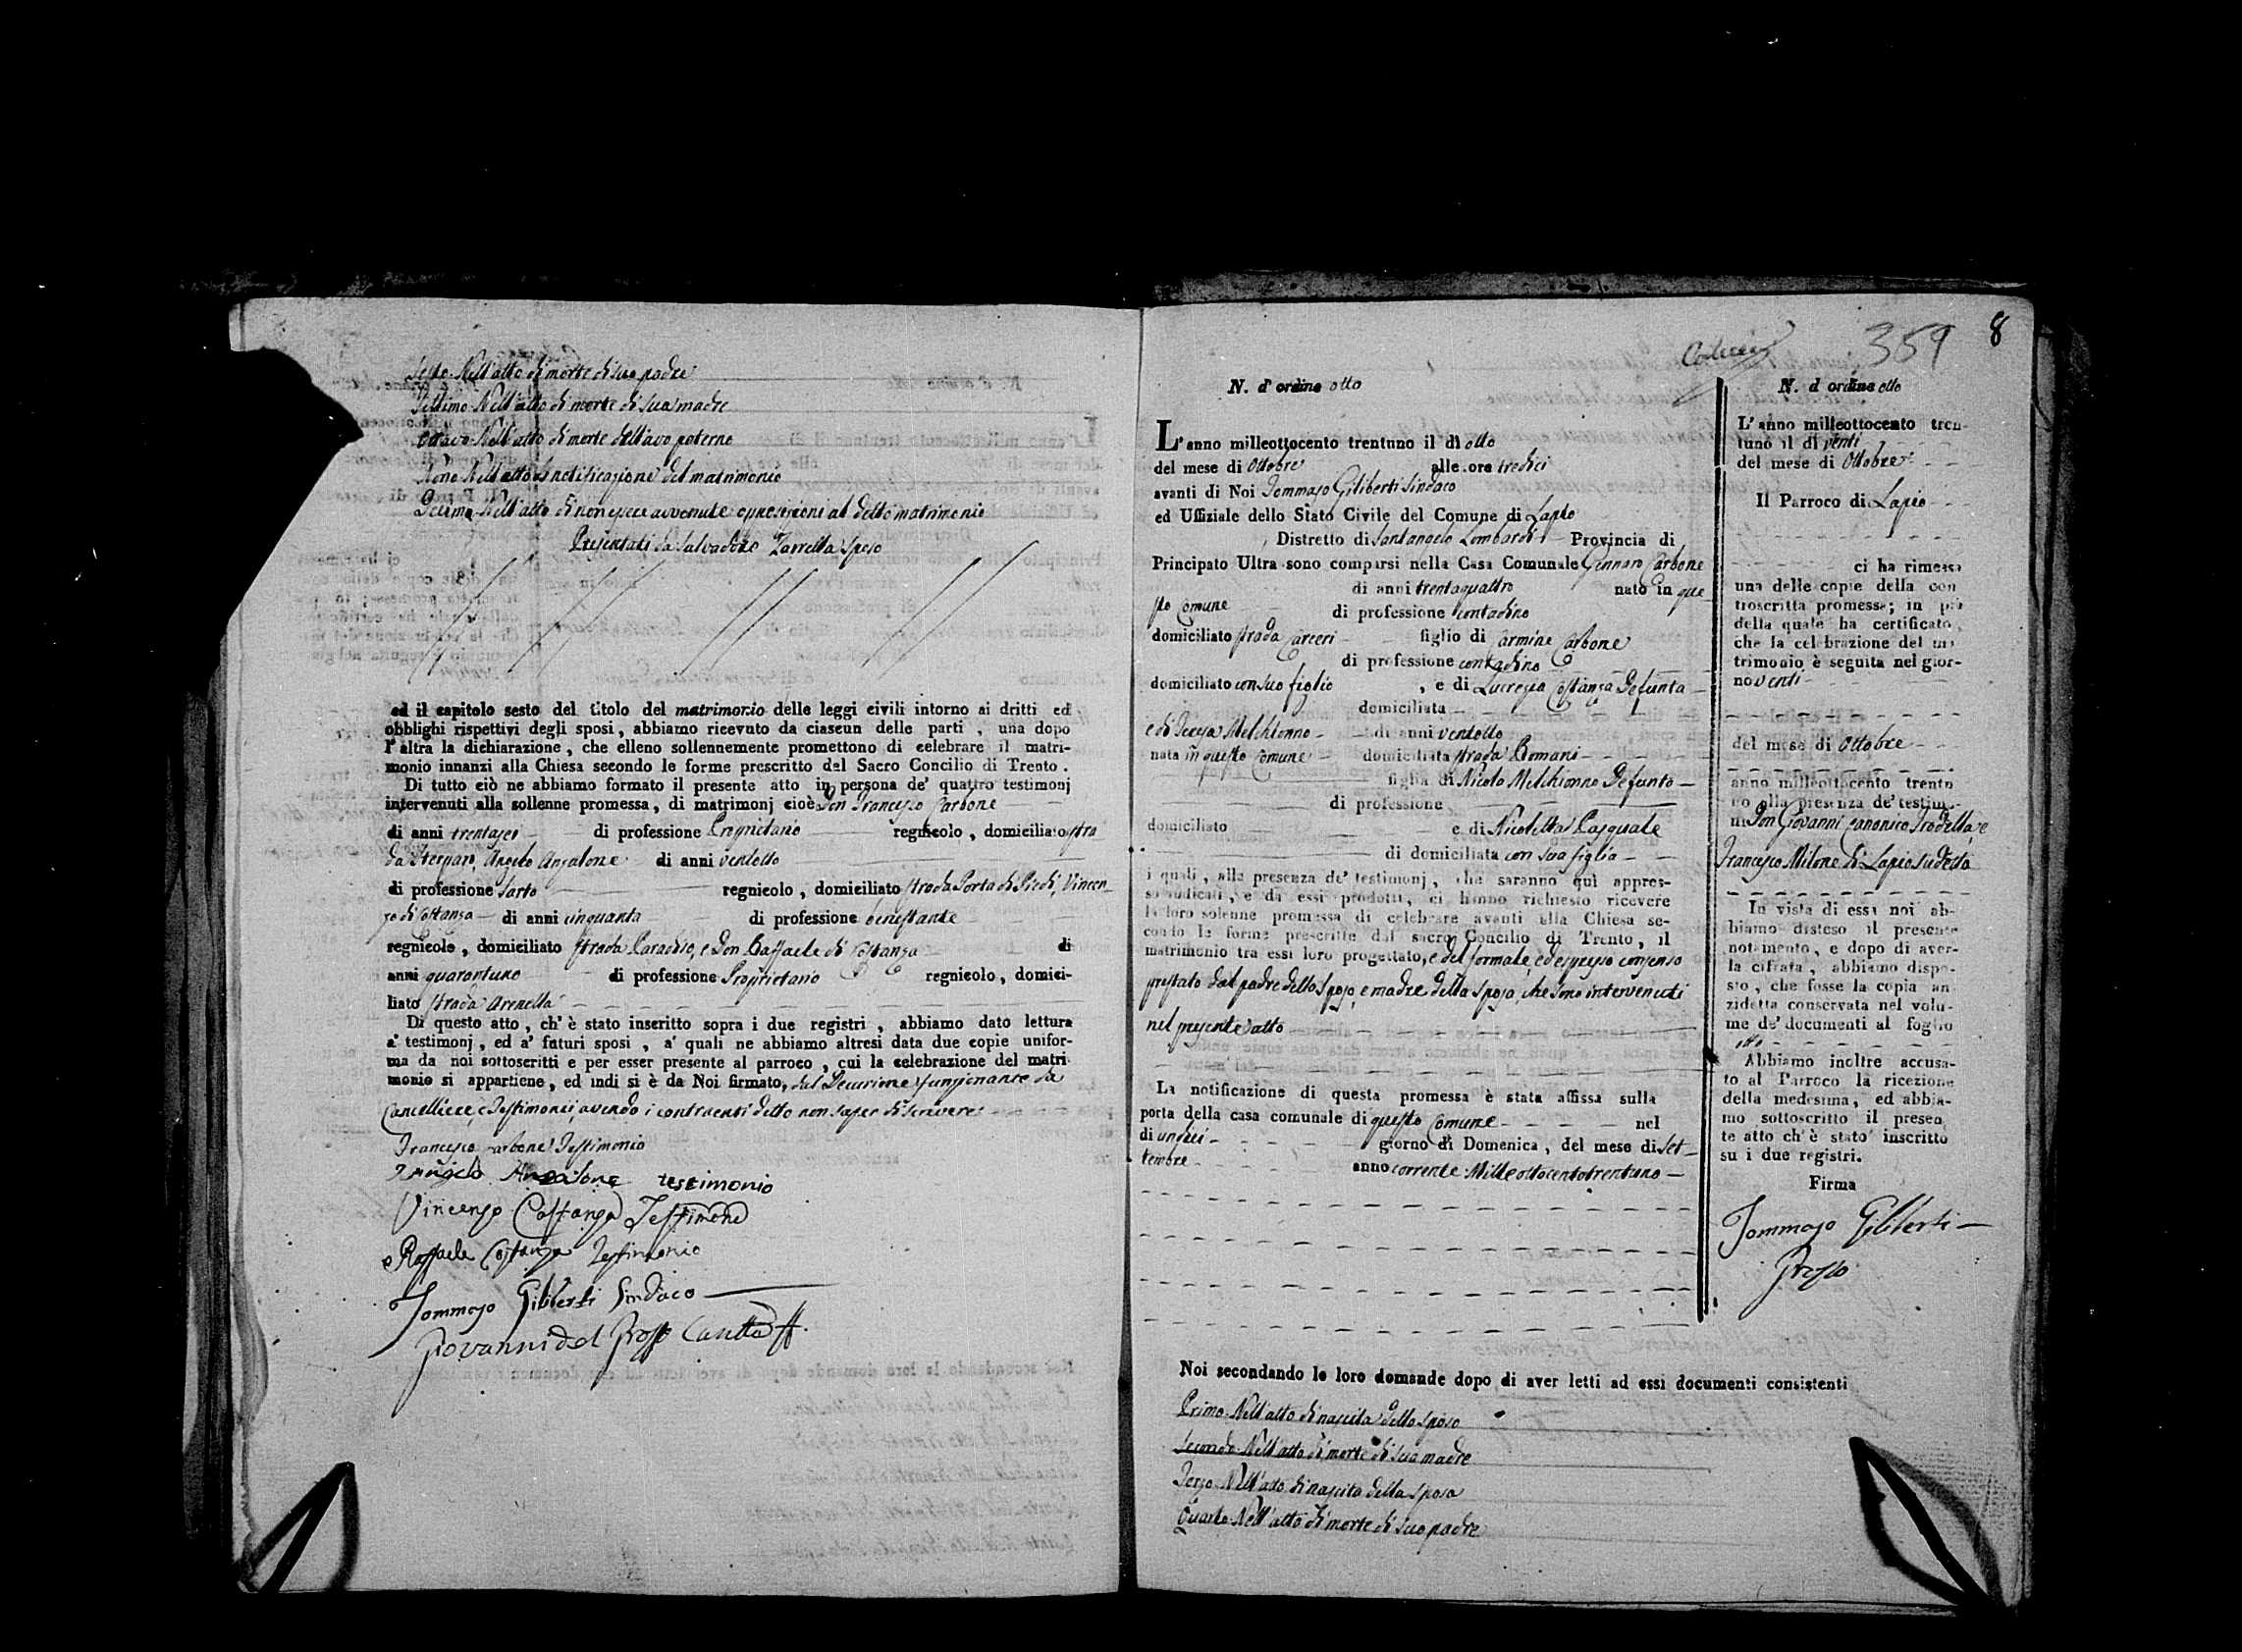 Sesto Nell'atto di morte di suo padre
Settimo Nell'atto di morte di sua madre
Ottavo Nell'atto di morte dell'avo paterno
Nono Nell'atto di notificazione del matrimonio
Decimo Nell'atto di non essere avvenute opposizioni al detto matrimonio
Presentati da Salvadore Zarrella sposo
ed il capitolo sesto del titolo del matrimonio delle leggi civili intorno ai dritti ed
obblighi rispettivi degli sposi, abbiamo ricevuto da ciascun delle parti, una dopo
l'altra la dichiarazione, che elleno sollennemente promettono di celebrare il matri-
monio innanzi alla Chiesa secondo le forme prescritto dal Sacro Concilio di Trento.
Di tutto ciò ne abbiamo formato il presente atto in persona de' quattro testimonj
intervenuti alla sollenne promessa, di matrimonj cioè Don Francesco Carbone
di anni trentasei di professione Proprietario regnicolo, domiciliato stra
da Angelo Anzalone di anni ventotto
di professione Sarto regnicolo, domiciliato strada Porta di Piedi, Vincen
zo di Costanza di anni cinquanta di professione benestante
regnicolo, domiciliato strada Paradiso, e Don Raffaele di Costanza di
anni quarantuno di professione Proprietario regnicolo, domici-
liato strada Arenella
Di questo atto, ch'è stato inseritto sopra i due registri, abbiamo dato lettura
a' testimonj, ed a' futuri sposi, a' quali ne abbiamo altresi data due copie unifor-
ma da noi sottoscritti e per esser presente al parroco, cui la celebrazione del matri-
monio si appartiene, ed indi si è da Noi firmato, dal Decurione funzionante da
Cancelliere, e Testimonii avendo i contraenti detto non saper di scrivere
Francesco Carbone Testimonio
Angelo Anzalone testimonio
Vincenzo Costanza Testimonio
Raffaele Costanza Testimonio
Tommaso Giliberti Sindaco
Giovanni del Grosso
359 8
N. d'ordine otto
L'anno milleottocento trentuno il dì otto
del mese di Ottobre alle ore tredici
avanti di Noi Tommaso Giliberti Sindaco
ed Uffiziale dello Stato Civile del Comune di Lapio
Distretto di Santangelo Lombardi Provincia di
Principato Ultra sono comparsi nella Casa Comunale Gennaro Carbone
di anni trentaquattro nato in que
sto Comune di professione contadino
domiciliato strada Carceri figlio di Carmine Carbone
di professione contadino
domiciliato con suo figlio, e di Lucrezia Costanza Defunta
domiciliata
e di Teresa Melchionno di anni ventotto
nata in questo Comune domiciliata strada Romani
figlia di Nicola Melchionno Defunto
di professione
domiciliato e di Nicoletta Pasquale
di domiciliata con sua figlia
i quali, alla presenza de' testimonj, che saranno quì appres-
so indicati, e da essi prodotti, ci hanno richiesto ricevere
la loro solenne promessa di celebrare avanti alla Chiesa se-
condo le forme prescritte dal sacro Concilio di Trento, il
matrimonio tra essi loro progettato, e del formale, ed espresso consenso
prestato dal padre dello sposo, e madre della sposa, che sono intervenuti
nel presente atto
La notificazione di questa promessa è stata affissa sulla
porta della casa comunale di questo Comune nel
di undici giorno di Domenica, del mese di Set-
tembre anno corrente Milleottocentotrentuno
Noi secondando le loro domande dopo di aver letti ad essi documenti consistenti
Primo Nell'atto di nascita dello sposo
Secondo Nell'atto di morte di sua madre
Terzo Nell'atto di nascita della sposa
Quarto Nell'atto di morte di suo padre
N. d'ordine otto
L'anno milleottocento tren-
tuno il dì venti
del mese di Ottobre
Il Parroco di Lapio
ci ha rimessa
una delle copie della con
troscritta promessa; in piè
della quale ha certificato,
che la celebrazione del ma-
trimonio è seguita nel gior-
no venti
del mese di Ottobre
anno milleottocento trentu
no alla presenza de' testimo-
nj Don Giovanni Canonico Trodella, e
Francesco Milone di Lapio sudetto
In vista di essa noi ab-
biamo disteso il presente
notamento, e dopo di aver-
la cifrata, abbiamo dispo-
sto, che fosse la copia an
zidetta conservata nel volu-
me de' documenti al foglio
otto
Abbiamo inoltre accusa-
to al Parroco la ricezione
della medesima, ed abbia-
mo sottoscritto il presen
te atto ch'è stato inscritto
su i due registri.
Firma
Tommaso Giliberti
Grosso